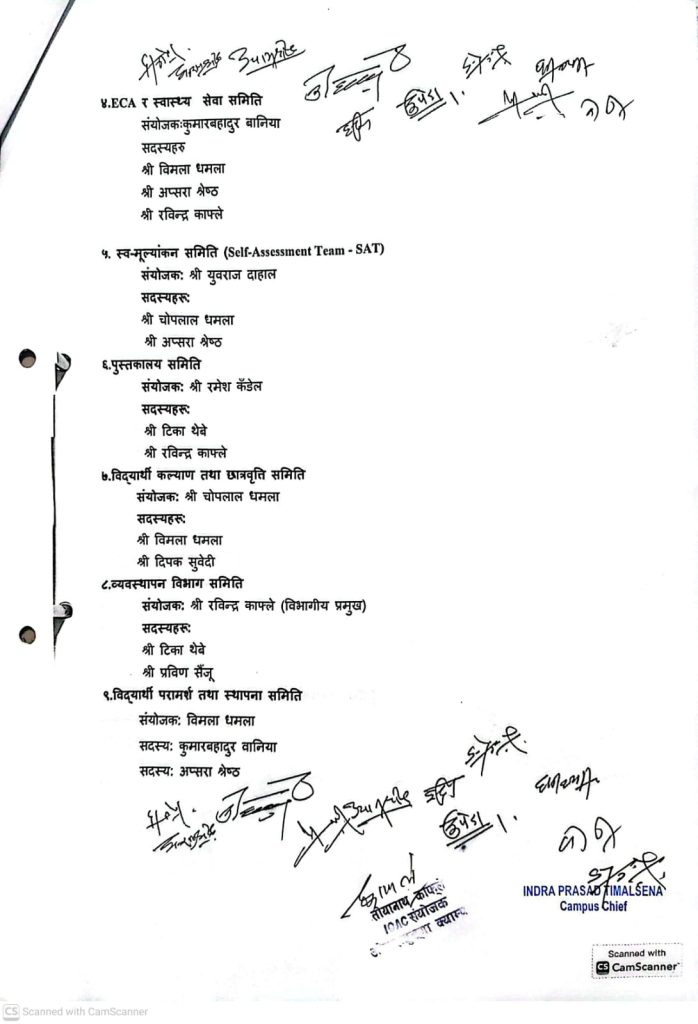 ४.ECA र स्वास्थ्य सेवा समिति
संयोजक:कुमारबहादुर वानिया
सदस्यहरु
श्री विमला धमला
श्री अप्सरा श्रेष्ठ
श्री रविन्द्र काफ्ले
५. स्व-मूल्यांकन समिति (Self-Assessment Team - SAT)
संयोजक: श्री युवराज दाहाल
सदस्यहरू:
श्री चोपलाल धमला
श्री अप्सरा श्रेष्ठ
६.पुस्तकालय समिति
संयोजक: श्री रमेश कँडेल
सदस्यहरू:
श्री टिका थेबे
श्री रविन्द्र काफ्ले
७.विद्यार्थी कल्याण तथा छात्रवृत्ति समिति
संयोजक: श्री चोपलाल धमला
सदस्यहरू:
श्री विमला धमला
श्री दिपक सुवेदी
८.व्यवस्थापन विभाग समिति
संयोजक: श्री रविन्द्र काफ्ले (विभागीय प्रमुख)
सदस्यहरू:
श्री टिका थेबे
श्री प्रविण सैंजू
९.विद्यार्थी परामर्श तथा स्थापना समिति
संयोजक: विमला धमला
सदस्य: कुमारबहादुर वानिया
सदस्य: अप्सरा श्रेष्ठ
INDRA PRASAD TIMALSENA
Campus Chief
IQAC संयोजक
Scanned with
CS CamScanner
CS Scanned with CamScanner